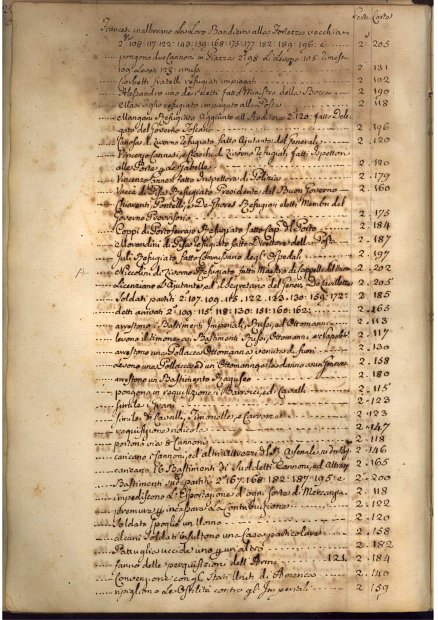 Tomo Carta
Francesi inalberano la Loro Bandiera alla Fortezza vecchia
2° 108: 117: 122: 149: 159: 168: 175: 177: 182: 189: 196. e 2. 205
pongono due Cannoni in Piazza 2° 98 105
109 2. 131
fratelli refugiati impiegati 2. 102
Alessandro uno de' detti fatto Ministro della Bocca 2. 190
refugiato impiegato alla Posta 2. 118
Refugiato Aggiunto all' Auditore 2. 120: fatto Dele
gato del Governo Toscano 2. 196
di Livorno Refugiato fatto Ajutante del Generale 2. 120
Vincenzo e di Livorno Refugiati fatti Ispettori
alle Porte, e la Gabella 2. 120
Vincenzo fatto Inspettore di Polizia 2. 179
Vacca di Pisa Refugiato Presidente del Buon Governo 2. 160
Chiarenti, Pontelli, e De Ghores Refugiati eletti Membri del
Governo Provvisorio 2. 175
Coppi di Portoferrajo Refugiato fatto Cap. del Porto 2. 184
Morandini di Pisa Refugiato fatto Direttore della Posta 2. 187
Refugiato fatto Commissario degl' Ospedali 2. 197
A Niccolini di Livorno Refugiato fatto Maestro di Cappella del Duomo 2. 202
Licenziano l' Ajutante, ed il Segretario del Gener. De Lavillette 2. 205
Soldati partiti 2: 107. 109. 115. 122. 123: 130: 159. 172: 2. 185
detti arrivati 2° 109: 115: 118: 130: 151: 160: 162: 2. 165
arrestono i Bastimenti Imperiali, Russi, ed Ottomanni 2. 113
levono il timone ai Bastimenti Russi, Ottomanni, e Napoletani 2. 117
arrestono una Pollacca Ottomanna venuta di fuori 2. 130
Levono una Pollacca ad un Ottomanno, e la danno ad un Genovese 2. 158
arrestono un Bastimento Raguseo 2. 180
pongono in requisizione i Barrocci, ed i Cavalli 2. 115
simile i Grani 2. 123
simile i Cavalli, Timonelle, e Carrozze 2. 123
requisizione ridicola 2. 147
portono via 8 Cannoni 2. 118
caricano i Cannoni, ed altri attrazzi dell' Arsenale, su dei Legni 2. 146
caricano 16 Bastimenti di suddetti Cannoni, ed Attrazzi 2. 165
Bastimenti sud. partiti 2° 167: 168: 182: 187: 195: e 2. 200
impediscono l' Esportazione d' ogni sorta di Mercanzia 2. 118
premura per incassare la Contribuzione 2. 122
Soldato spoglia un Uomo 2. 120
alcuni Soldati insultono una Casa particolare 2. 158
Pattuglia uccide uno, e un altro 2. 182
fanno delle perquisizioni dell' Armi 121. 2. 184
Convenzione con gl' Stati Uniti di America 2. 140
ripigliono le Ostilità contro gl' Imperiali 2. 159